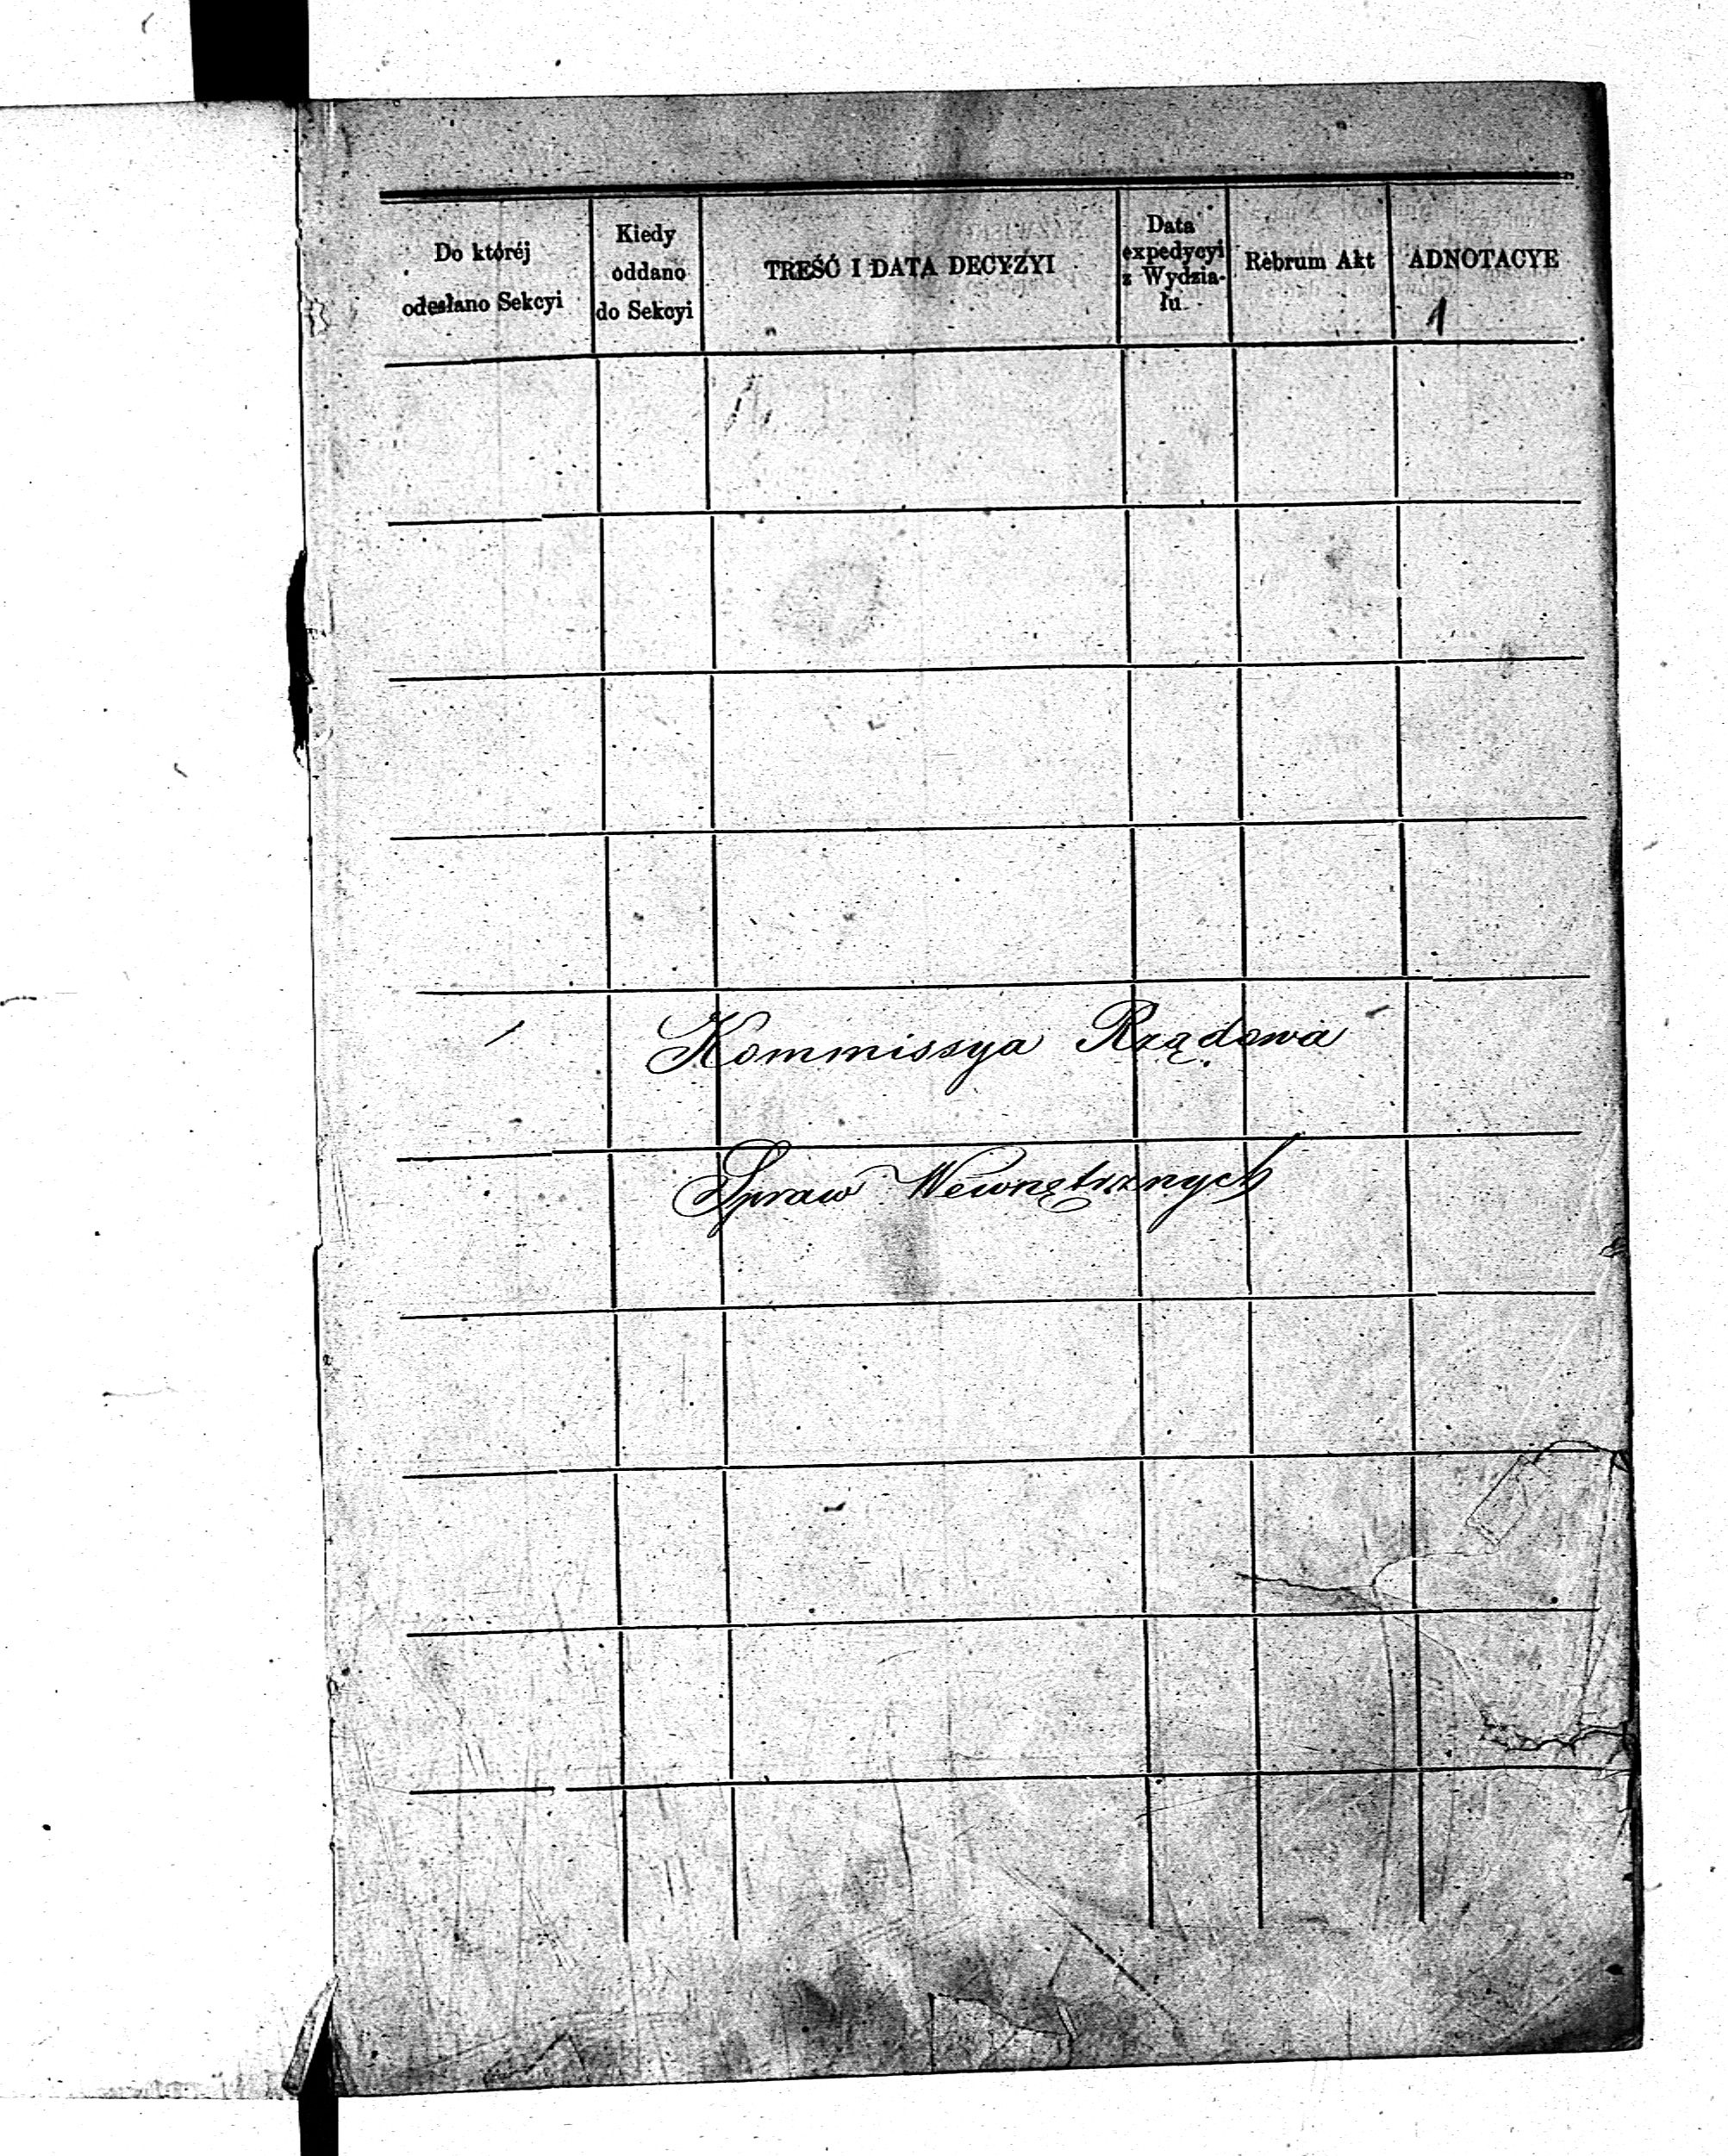 Do któréj
odesłano Sekcyi
Kiedy
oddano
do Sekcyi
TREŚĆ I DATA DECYZYI
Data
expedycyi
z Wydzia-
łu
Rebrum Akt
ADNOTACYE
1
Kommissya Rządowa
Spraw Wewnętrznych